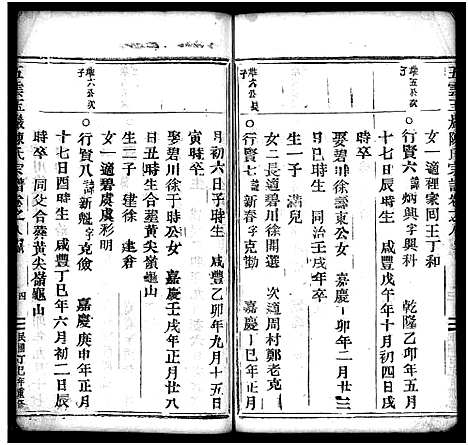 五雲玉巖陳氏宗譜卷之八
華五公次子
女一適裡家囘王丁和
○行賢六諱炳興字興科 乾隆乙卯年五月
時生 咸豐戊午年十月初四日戌
時卒
娶碧川徐壽東公女 嘉慶丁卯年二月廿三
時生 同治壬戌年
生一子 滿兒
女二長適徐開選 次適周村鄭老克
華六公長子
○行賢七諱新春字克勤 嘉慶丁巳年正月
月初六日子時生 咸豐乙卯年九月十五日
寅時卒
娶碧川徐于時公女 嘉慶壬戌年正月廿八
日丑時生合葬黃尖嶺龜山
生二子 建徐 建倉
女一適碧虞虞彩明
華六公次子
○行賢八諱新魁字克儉 嘉慶庚申年正月
十七日酉時生 咸豐丁巳年六月初二日辰
時卒 同父合葬黃尖嶺龜山
五雲玉巖陳氏宗譜卷之八
四
民國丁巳年重修